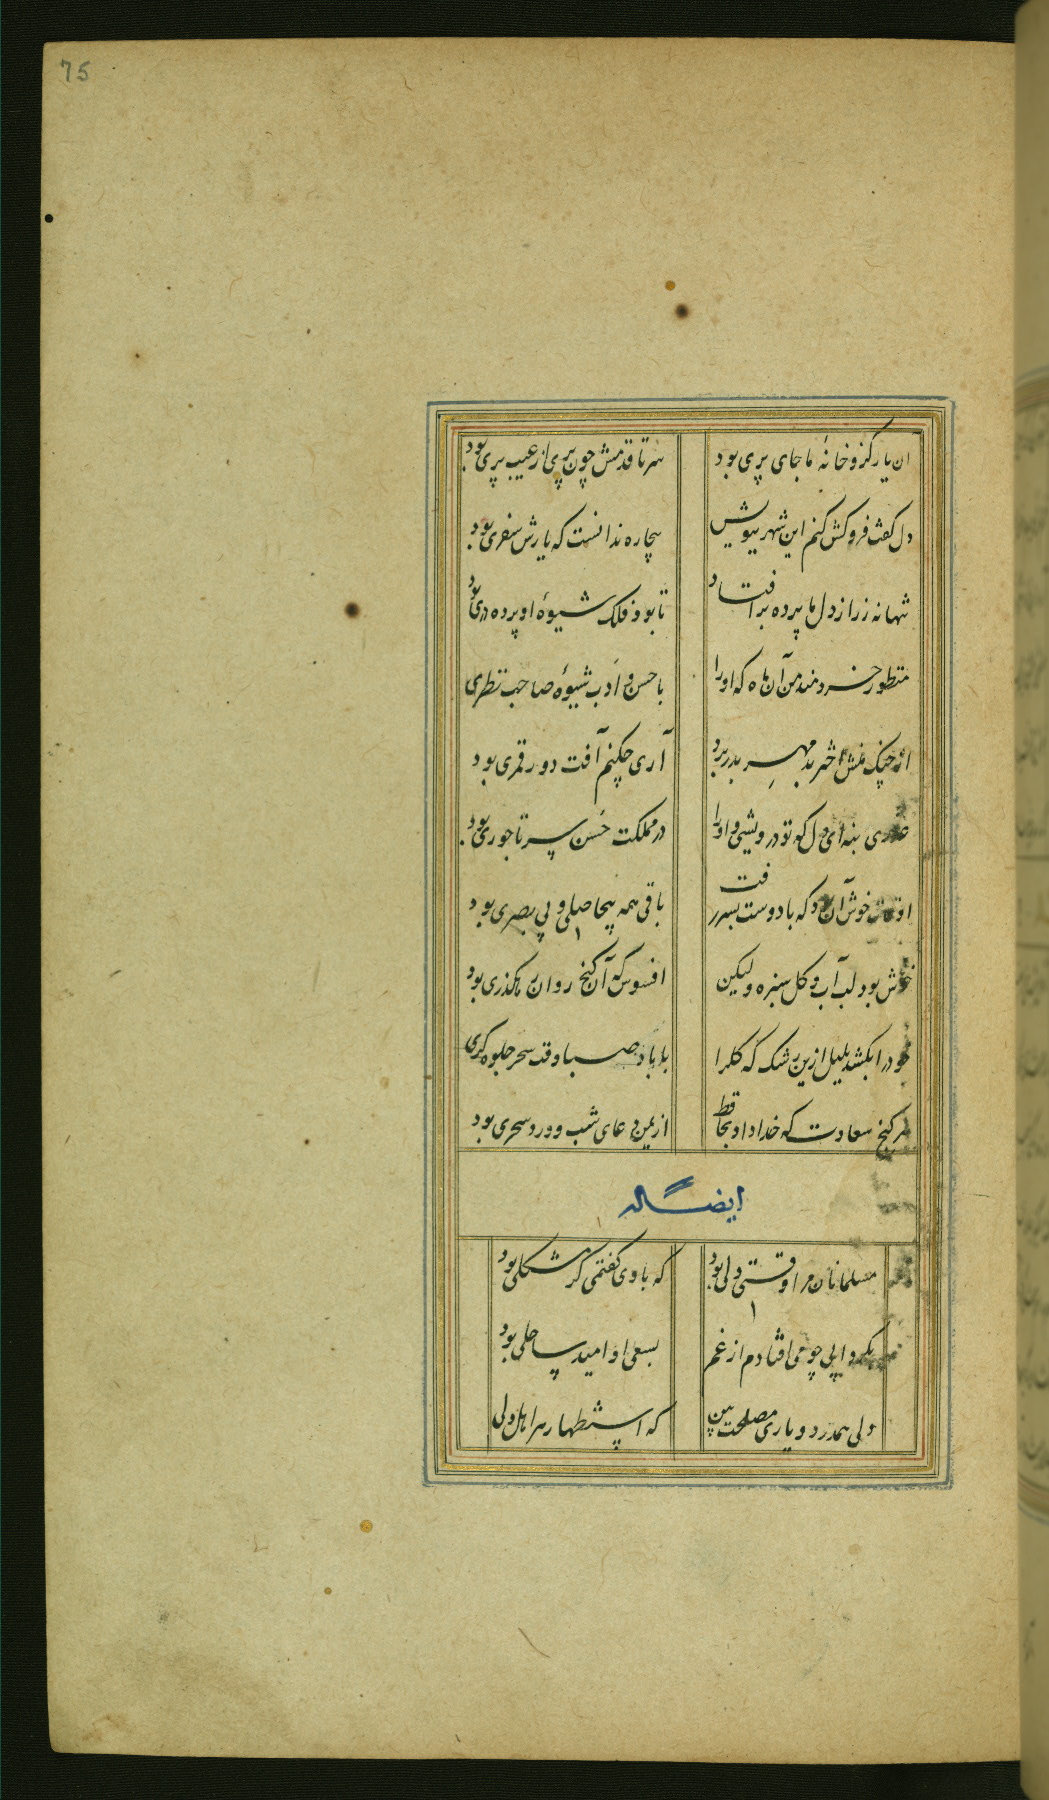 75
ان یار کزو خانهٔ ما جای پری بود
سر تا قدمش چون پری از عیب بری بود
دل کفت فروکش کنم این شهر ببویش
بیچاره ندانست که یارش سفری بود
تنها نه ز راز دل ما پرده برافتاد
تا بود فلک شیوهٔ او پرده دری بود
منظور خردمند من آن ماه که او را
با حسن و ادب شیوهٔ صاحب نظری
از چنک منش اختر بد مهر بدر برد
آری چکنم آفت دور قمری بود
عذری بنه ای دل که تو درویشی و او را
در مملکت حسن سر تاجوری بود
اوقات خوش آن بود که با دوست بسر رفت
باقی همه بیحاصلی و بی بصری بود
خوش بود لب آب و کل سبزه ولیکن
افسوس که آن کنج روان رهکذری بود
خود را بکشد بلبل ازین رشک که کلرا
با باد صبا وقت سحر جلوه کری
هر کنج سعادت که خدا داد بحافظ
از یمن دعای شب و ورد سحری بود
ایضاً له
مسلمانان مرا وقتی دلی بود
که با وی کفتمی کر مشکلی بود
بکردابی چو می افتادم از غم
بسعی او امید ساحلی بود
دلی همدرد و یاری مصلحت بین
که استظهار هر اهل دلی